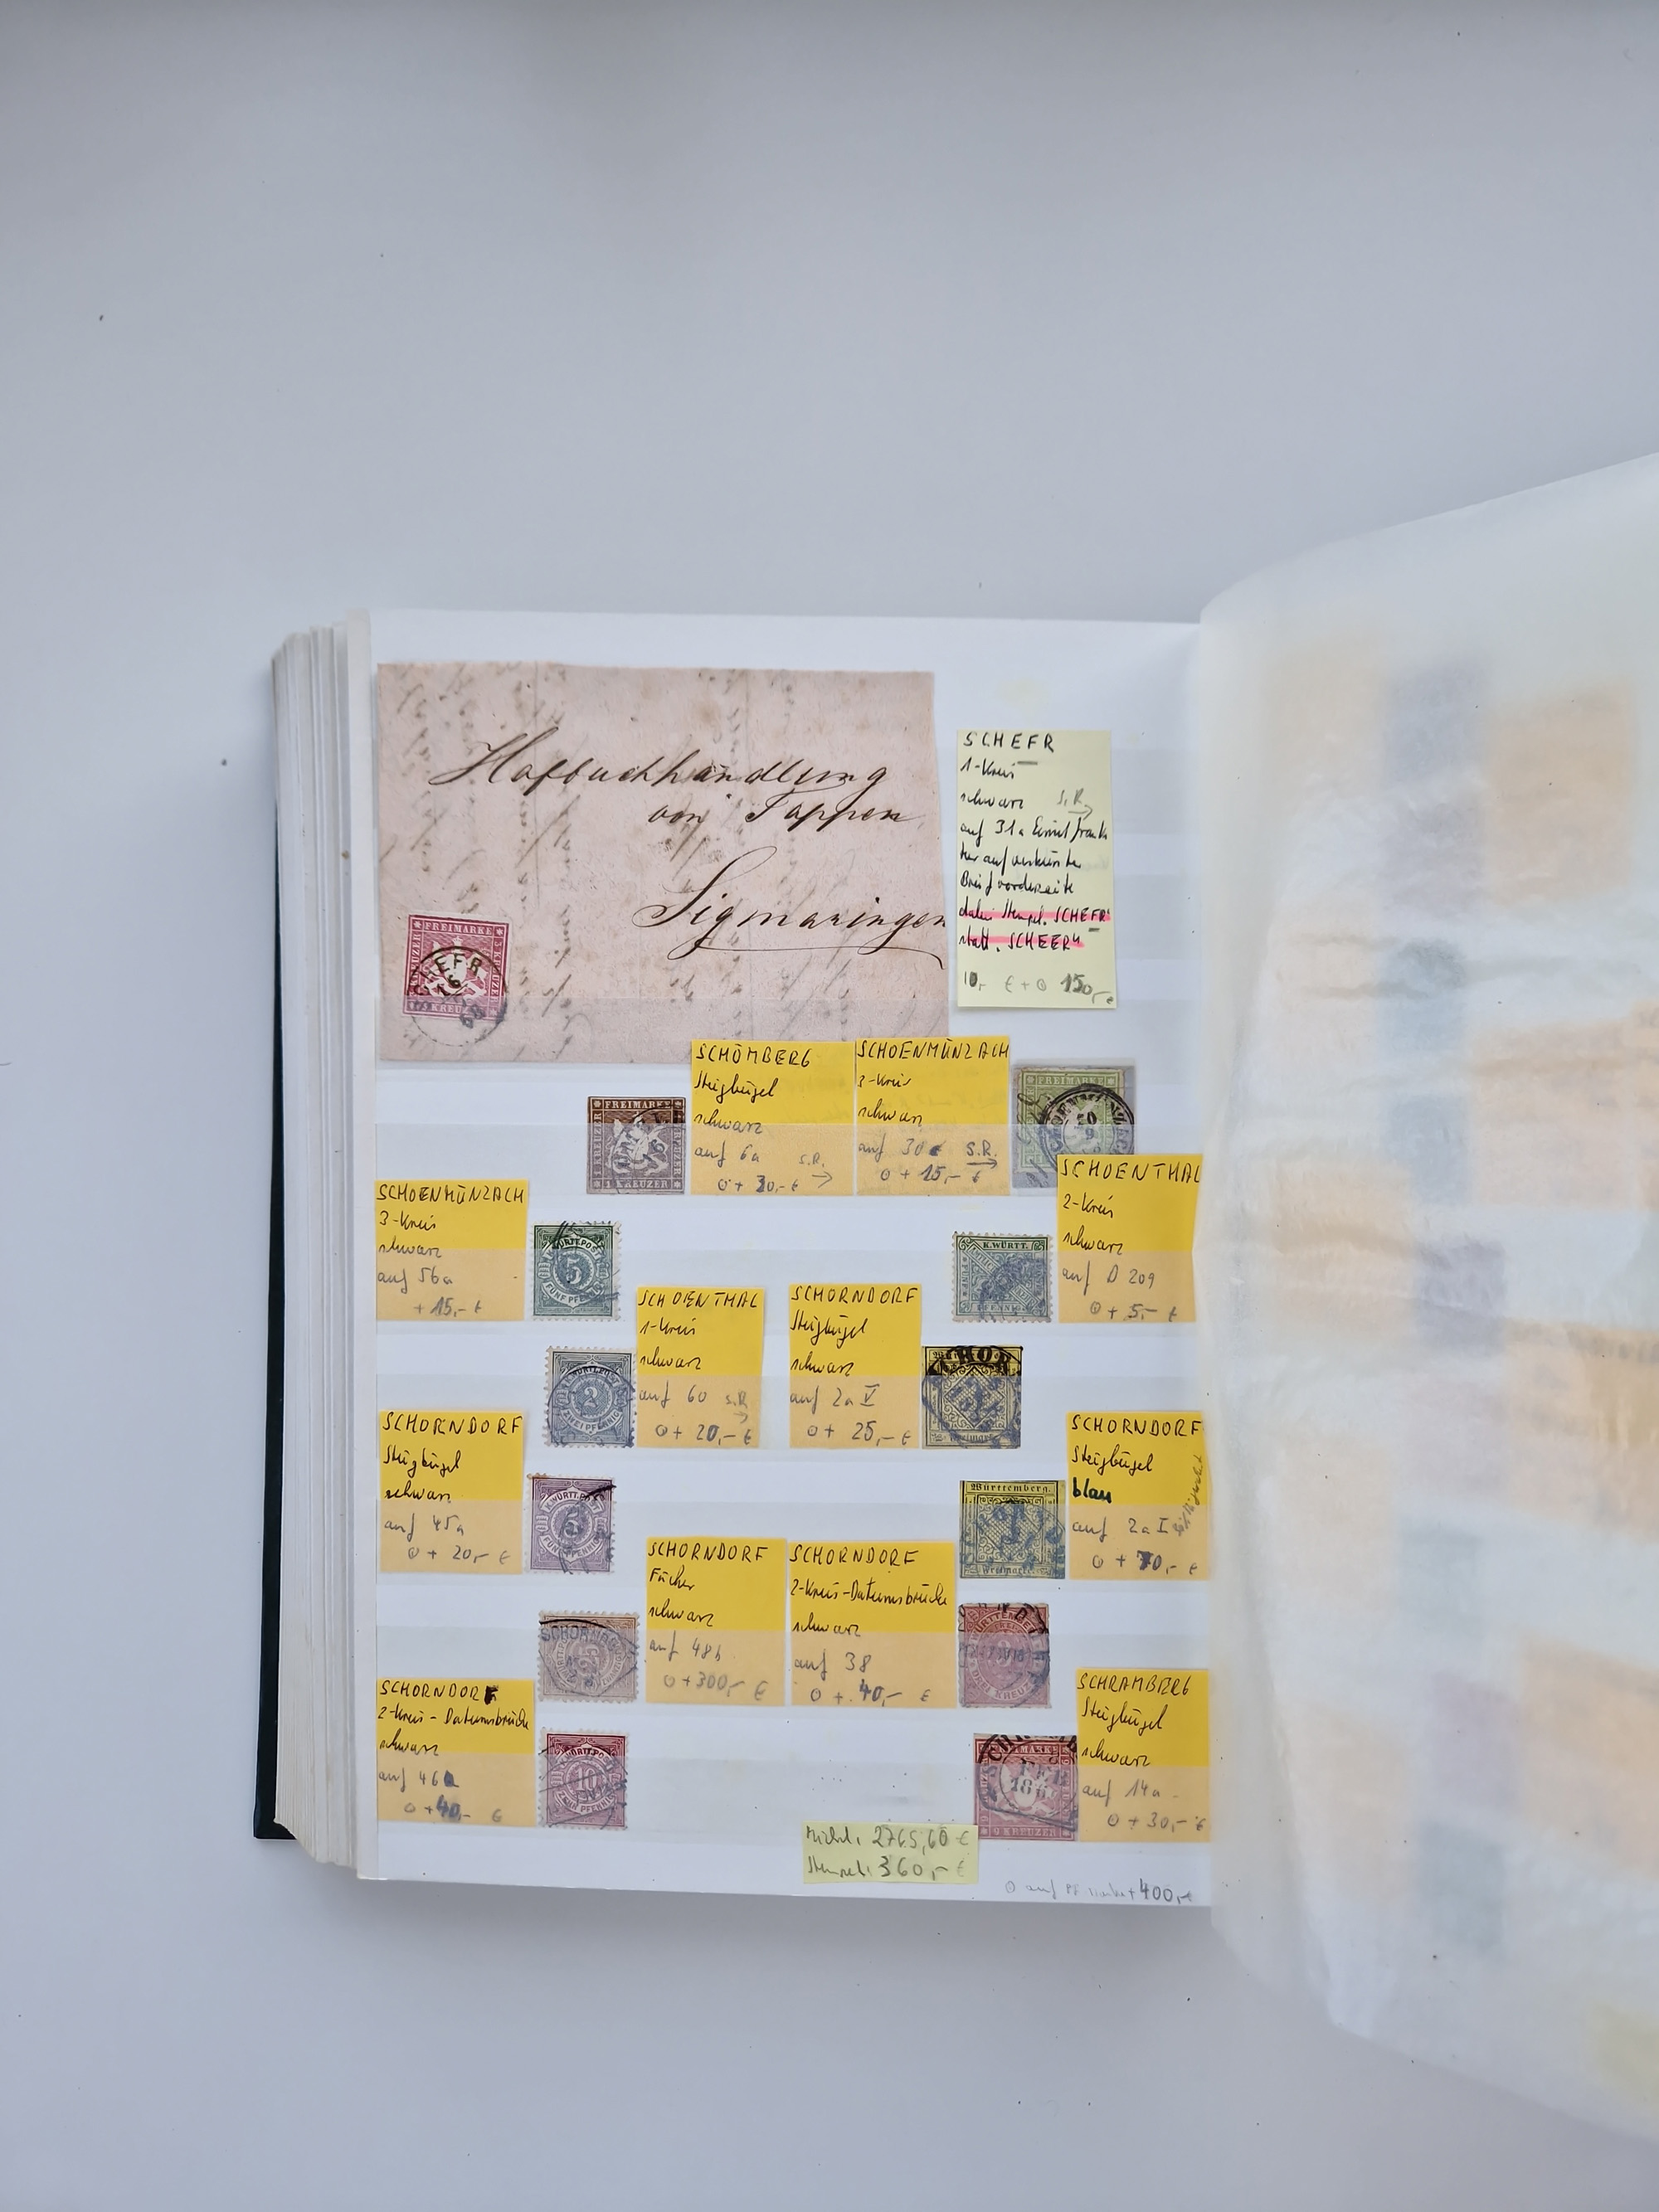 Hofbuchhandlung
von Tappen
Sigmaringen
FREIMARKE
SCHEFR
16
68
SCHEFR
1-Kreis
schwarz S.R.
auf 31a Einzelfranka
tur auf verkürzter
Briefvorderseite
dabei Stempel "SCHEFR"
statt "SCHEER"
10,- € + 150,- €
SCHÖMBERG
Steigbügel
schwarz
auf 6a S.R.
+ 30,- €
SCHOENMÜNZACH
3-Kreis
schwarz
auf 30 S.R.
+ 15,- €
FREIMARKE
1 KREUZER
FREIMARKE
20
9
SCHOENMÜNZACH
3-Kreis
schwarz
auf 56a
+ 15,- €
WÜRTT.POST
5
FÜNF PFENNIG
K.WÜRTT.
SCHOENTHAL
2-Kreis
schwarz
auf D 209
+ 5,- €
WÜRTT.POST
2
ZWEI PFENNIG
SCHOENTHAL
1-Kreis
schwarz
auf 60 S.R.
+ 20,- €
SCHORNDORF
Steigbügel
schwarz
auf 2a V
+ 25,- €
Freimarke
SCHORNDORF
Steigbügel
schwarz
auf 45a
+ 20,- €
WÜRTT.POST
5
Württemberg.
Freimarke
SCHORNDORF
Steigbügel
blau
auf 2a I
+ 70,- €
SCHORNDORF
SCHORNDORF
Fächer
schwarz
auf 48b
+ 300,- €
SCHORNDORF
2-Kreis-Datumsbrücke
schwarz
auf 38
+ 40,- €
WÜRTTEMBERG
DREI KREUZER
SCHORNDORF
2-Kreis-Datumsbrücke
schwarz
auf 46a
+ 40,- €
WÜRTT.POST
10
ZEHN PFENNIG
FREIMARKE
FEB
186
9 KREUZER
SCHRAMBERG
Steigbügel
schwarz
auf 14a
+ 30,- €
Michel: 2765,60 €
Stempel: 360,- €
auf Pf + 400,- €